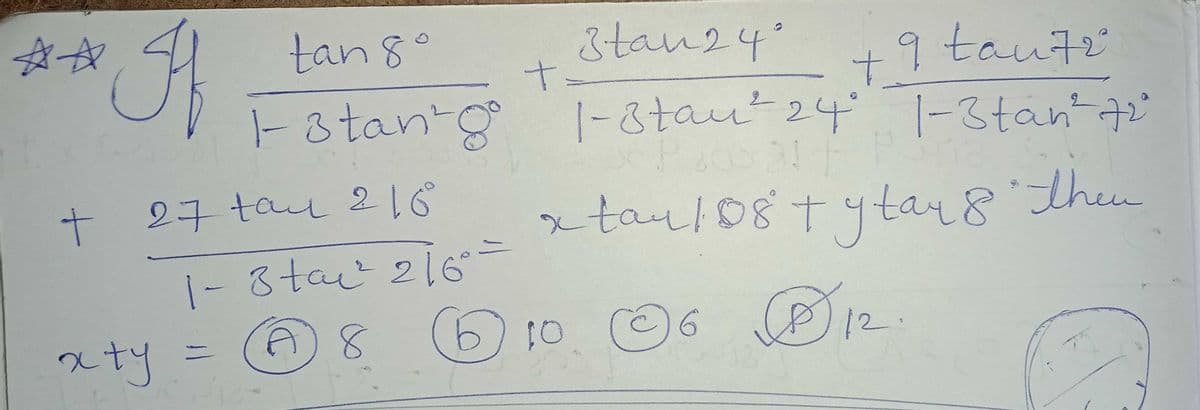 ☆☆ If tan 8° / 1-3tan²8° + 3tan24° / 1-3tan²24° + 9 tan72° / 1-3tan²72°
+ 27 tan 216° / 1-3tan²216° = x tan108° + y tan8° then
x+y = (A) 8 (b) 10 (C) 6 (D) 12.